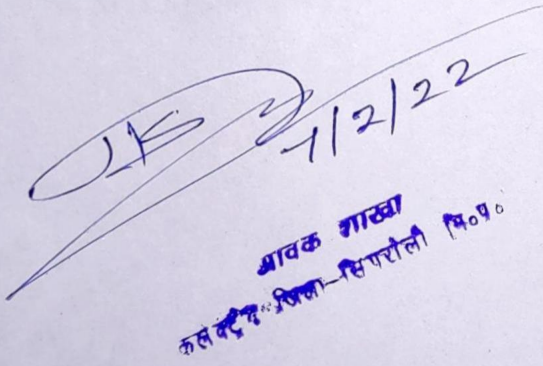 7/2/22
आवक शाखा
कलेक्ट्रेट जिला-सिंगरौली म०प्र०